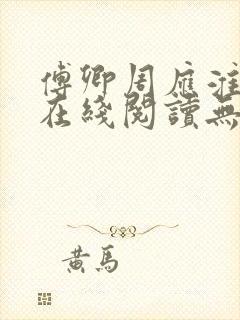 傅卿周雁淮
在綫閱讀無
黃馬